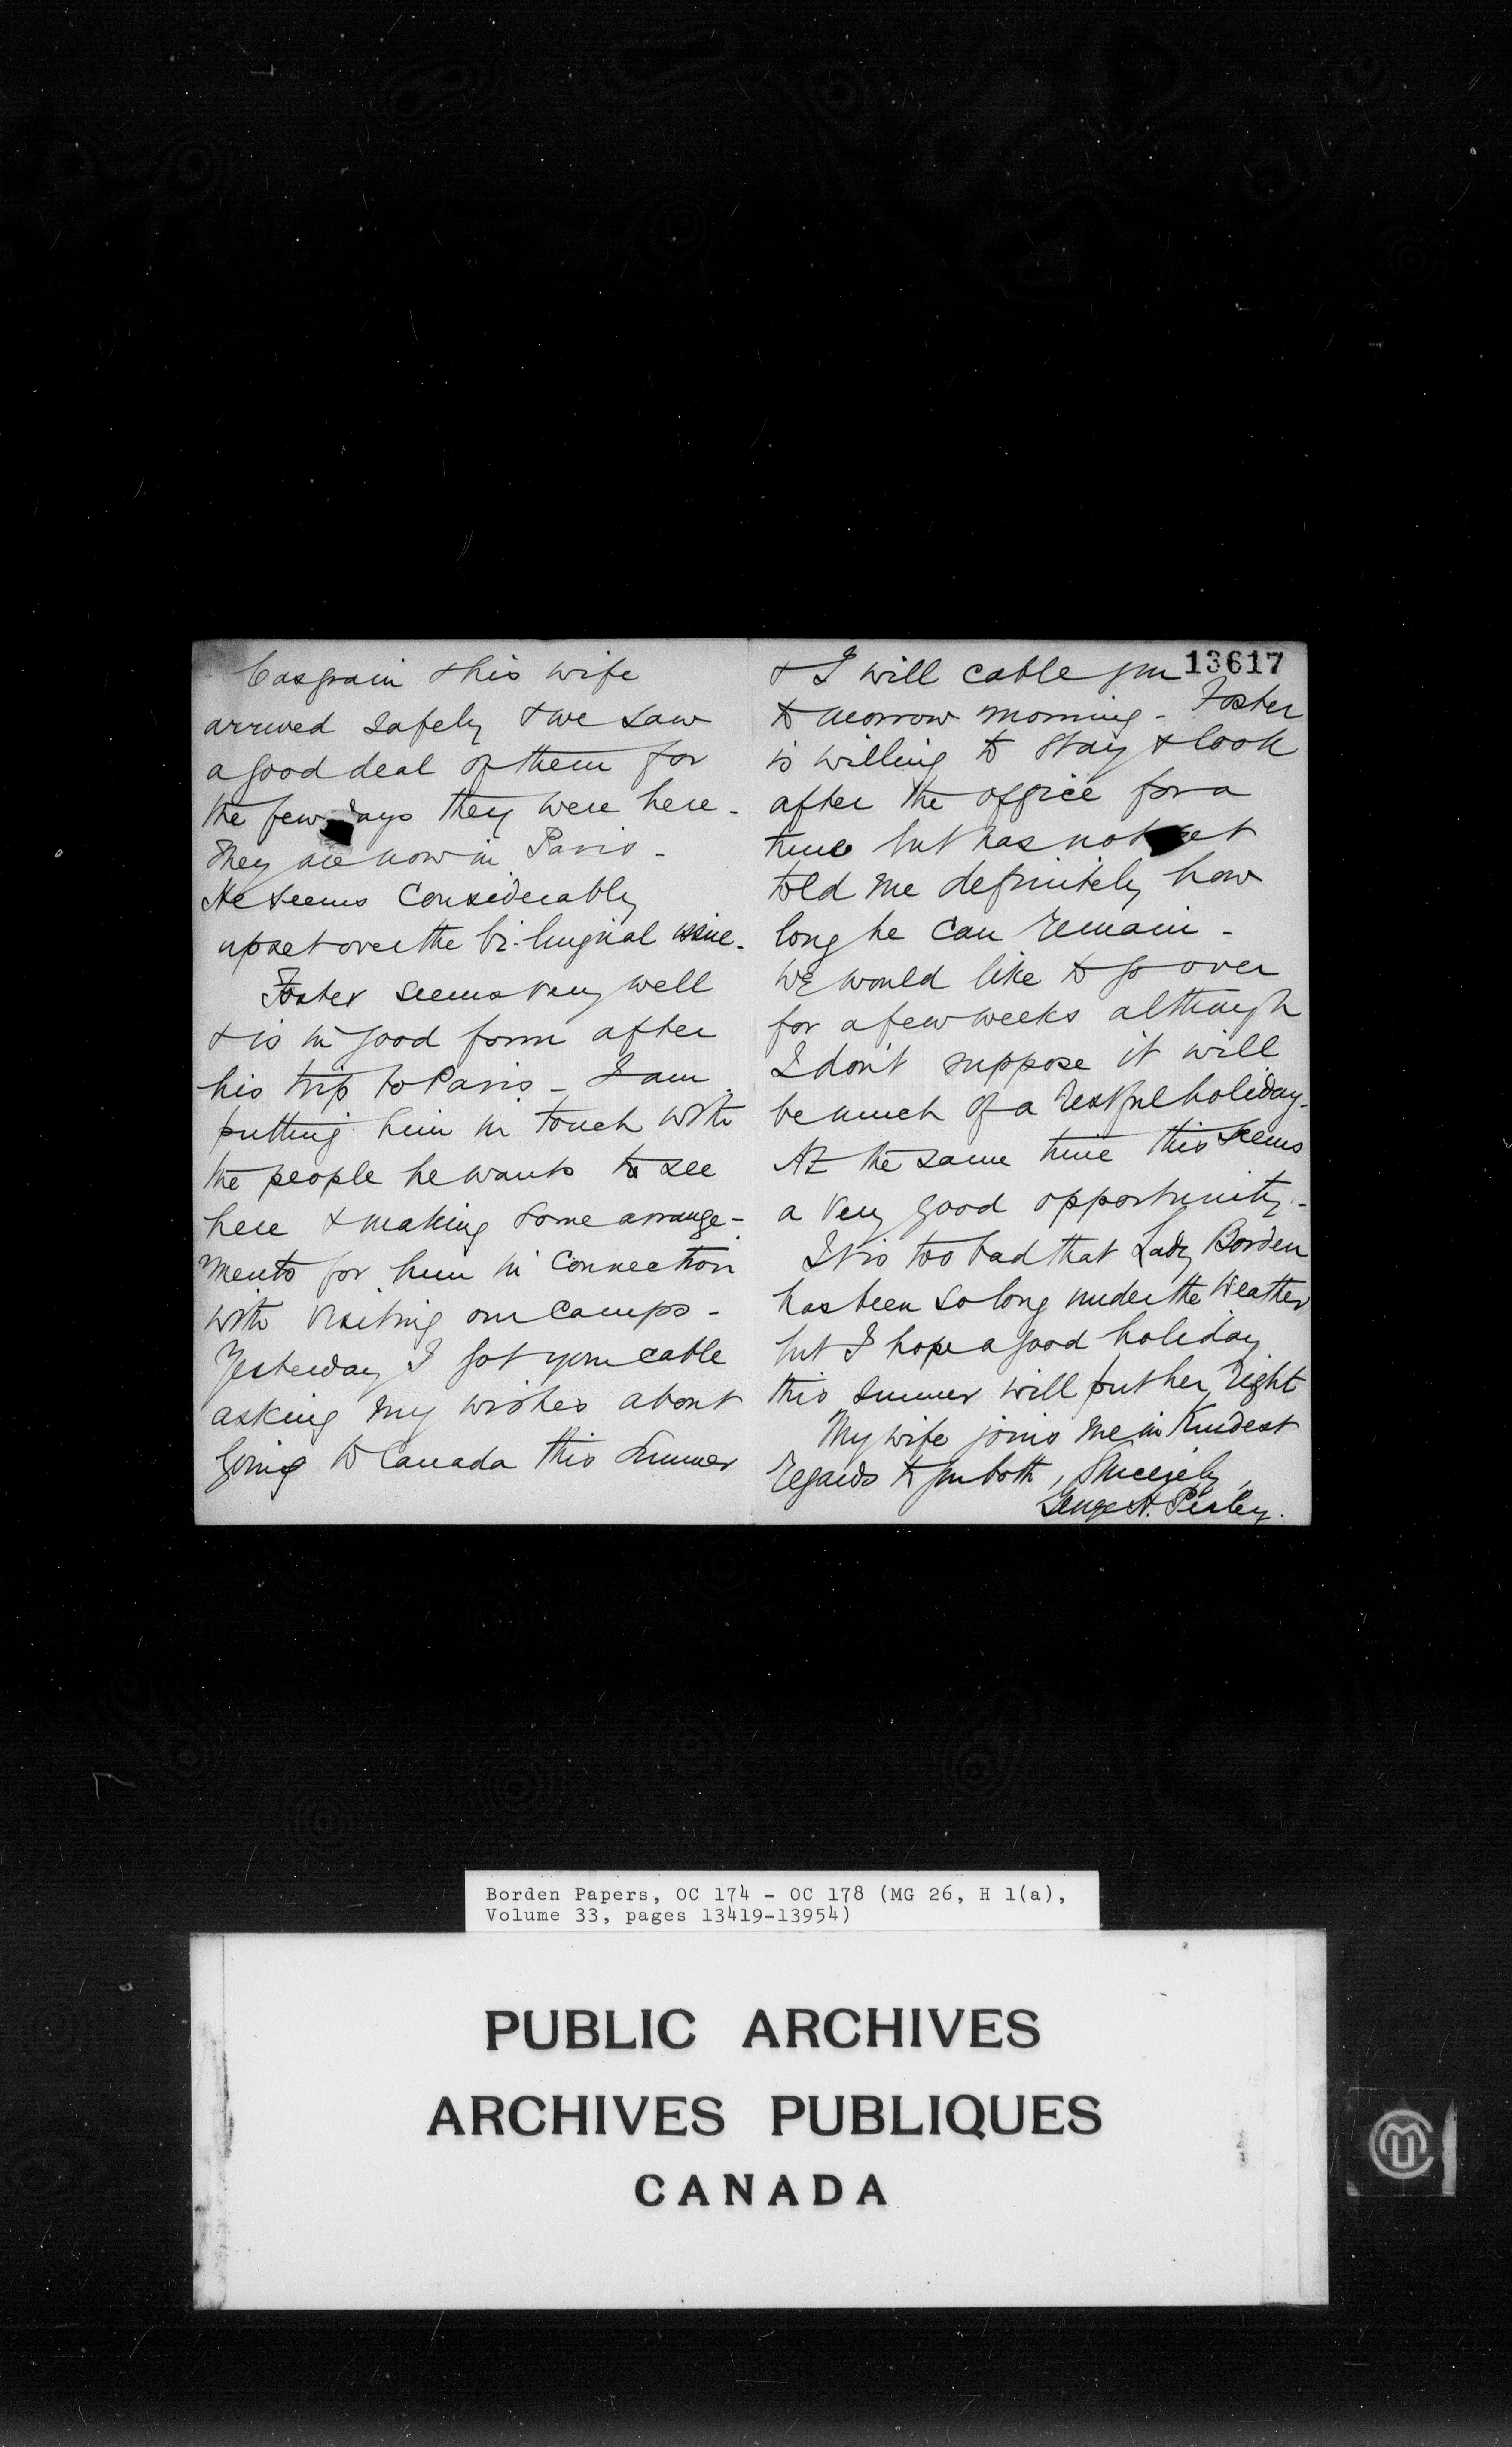 Casgrain & his wife
arrived safely & we saw
a good deal of them for
the few days they were here -
They are now in Paris -
He seems considerably
upset over the bi-lingual issue -
Foster seems very well
& is in good form after
his trip to Paris - I am
putting him in touch with
the people he wants to see
here & making some arrange-
ments for him in connection
with visiting our camps -
Yesterday I got your cable
asking my wishes about
going to Canada this Summer
13617
& I will cable you
to morrow morning - Foster
is willing to stay & look
after the office for a
time but has not yet
told me definitely how
long he can remain -
We would like to go over
for a few weeks although
I don't suppose it will
be much of a restful holiday -
At the same time this seems
a very good opportunity -
It is too bad that Lady Borden
has been so long under the weather
but I hope a good holiday
this summer will put her right
My wife joins me in kindest
regards to you both, Sincerely,
George H. Perley.
Borden Papers, OC 174 - OC 178 (MG 26, H 1(a),
Volume 33, pages 13419-13954)
PUBLIC ARCHIVES
ARCHIVES PUBLIQUES
CANADA